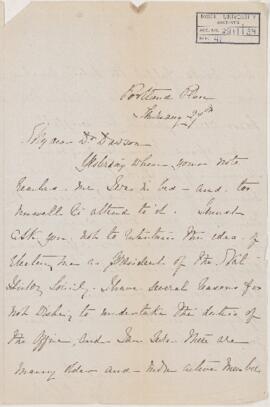 McGILL UNIVERSITY
ARCHIVES
ACC. NO.
REF.
Portland Place
Thursday 27th
My dear Dr Dawson
Yesterday when your note
reached me I was in bed - and too
unwell to attend to it. I must
ask you not to entertain the idea of
electing me as President of the Nat.
History Society. I have several reasons for
not wishing to undertake the duties of
the office and I am sure there are
many older and more active members